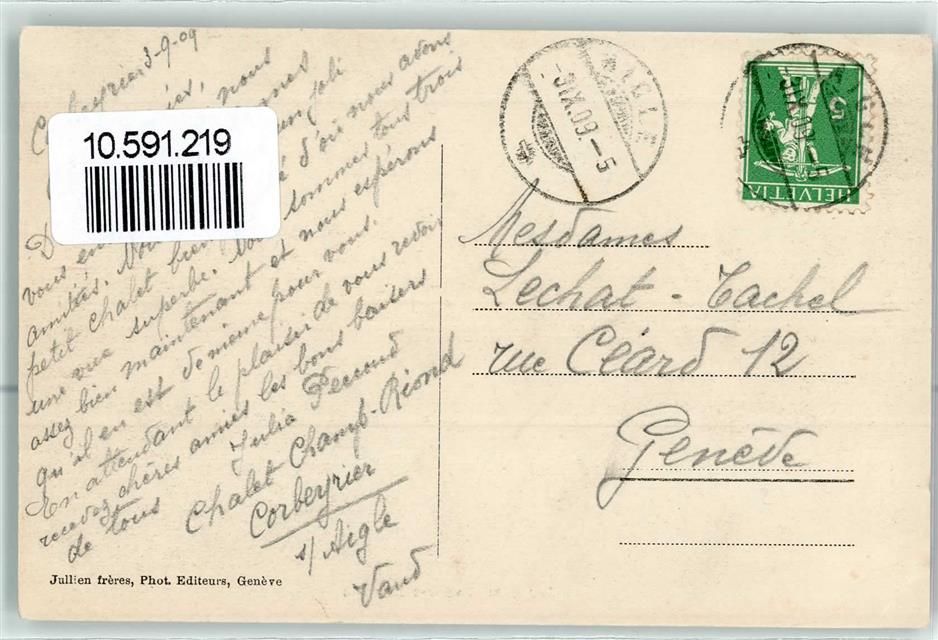 Corbeyrier 3-9-09
nous
D
vous en
amitiés. Nou
petit chalet bien d'où nous avons
une vue superbe. Nous sommes tous trois
assez bien maintenant et nous espérons
qu'il en est de même pour vous.
En attendant le plaisir de vous revoir
recevez chères amies les bons baisers
de tous
Julia Perroud
Chalet Champ-Riond
Corbeyrier
s/ Aigle
Vaud
10.591.219
Jullien frères, Phot. Editeurs, Genève
AIGLE
-3.IX.09.-5
HELVETIA
5
Mesdames
Lechat-Tachel
rue Céard 12
Genève